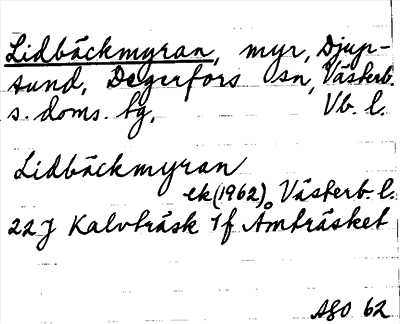 Lidbäckmyran, myr, Djup-
sund, Degerfors sn, Västerb.
s. doms. hg, Vb. l.
Lidbäckmyran
ek (1962), Västerb. l.
22J Kalvträsk 7f Amträsket
ASO 62